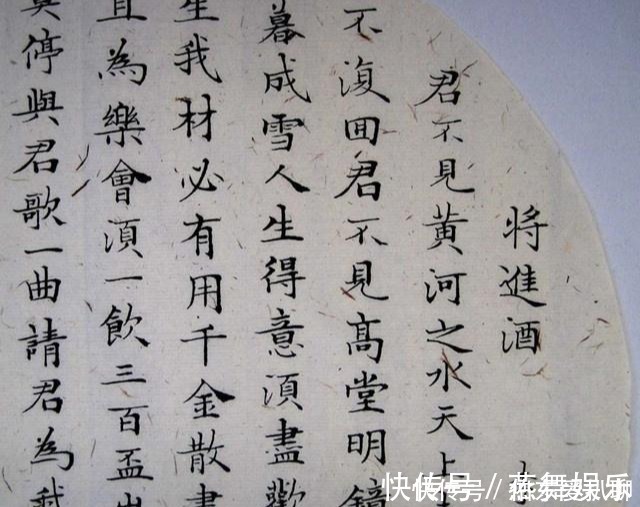 將進酒
君不見黄河之水天上
不復囬君不見髙堂明鏡
暮成雪人生得意湏盡歡
生我材必有用千金散盡
且為樂會湏一飲三百盃
莫停與君歌一曲請君為我
快传号 //